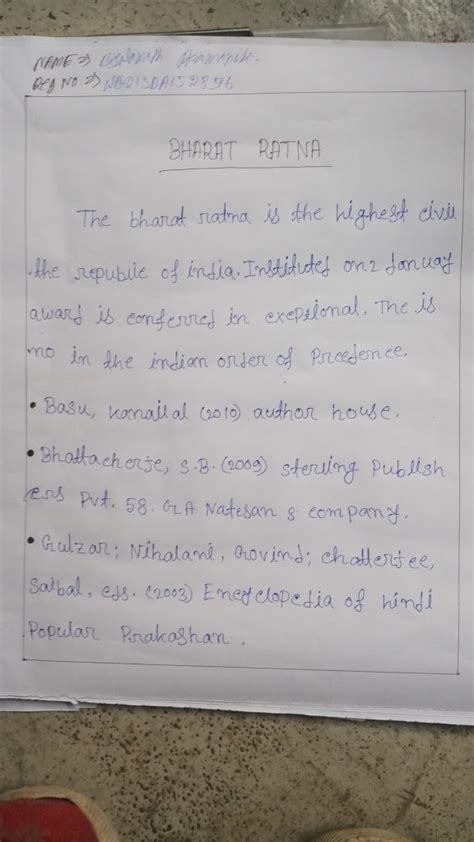 NAME ⇒ Biswanath Pramanik.
REG NO. ⇒ WB21SDA152896
BHARAT RATNA
The bharat ratna is the highest civil
the republic of india. Instituted on 2 January
award is conferred in exeptional. The is
no in the indian order of Preedence.
• Basu, Kanailal (2010) author house.
• Bhattacherje, S.B. (2009) sterling Publish
ers Pvt. 58. GA Natesan & company.
• Gulzar; Nihalani, Govind; chatterjee,
Saibal, eds. (2003) Encyclopedia of hindi
Popular Prakashan.